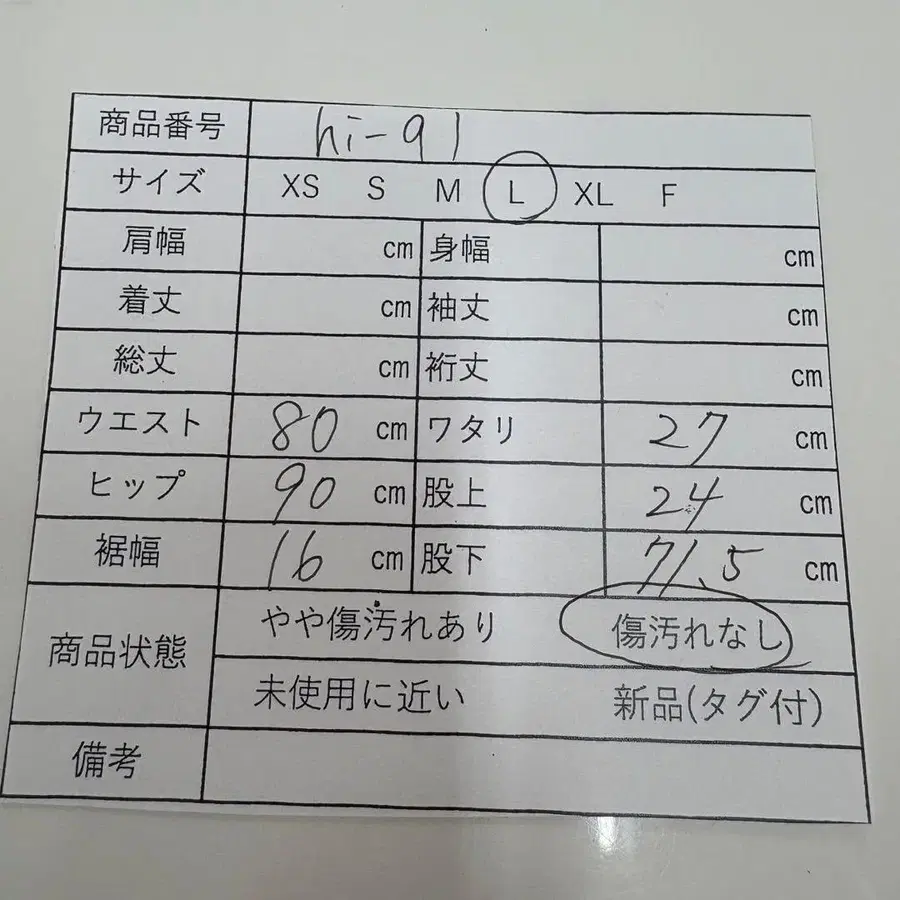 商品番号 hi-91
サイズ XS S M L XL F
肩幅 cm 身幅 cm
着丈 cm 袖丈 cm
総丈 cm 裄丈 cm
ウエスト 80 cm ワタリ 27 cm
ヒップ 90 cm 股上 24 cm
裾幅 16 cm 股下 71.5 cm
商品状態 やや傷汚れあり 傷汚れなし
未使用に近い 新品(タグ付)
備考